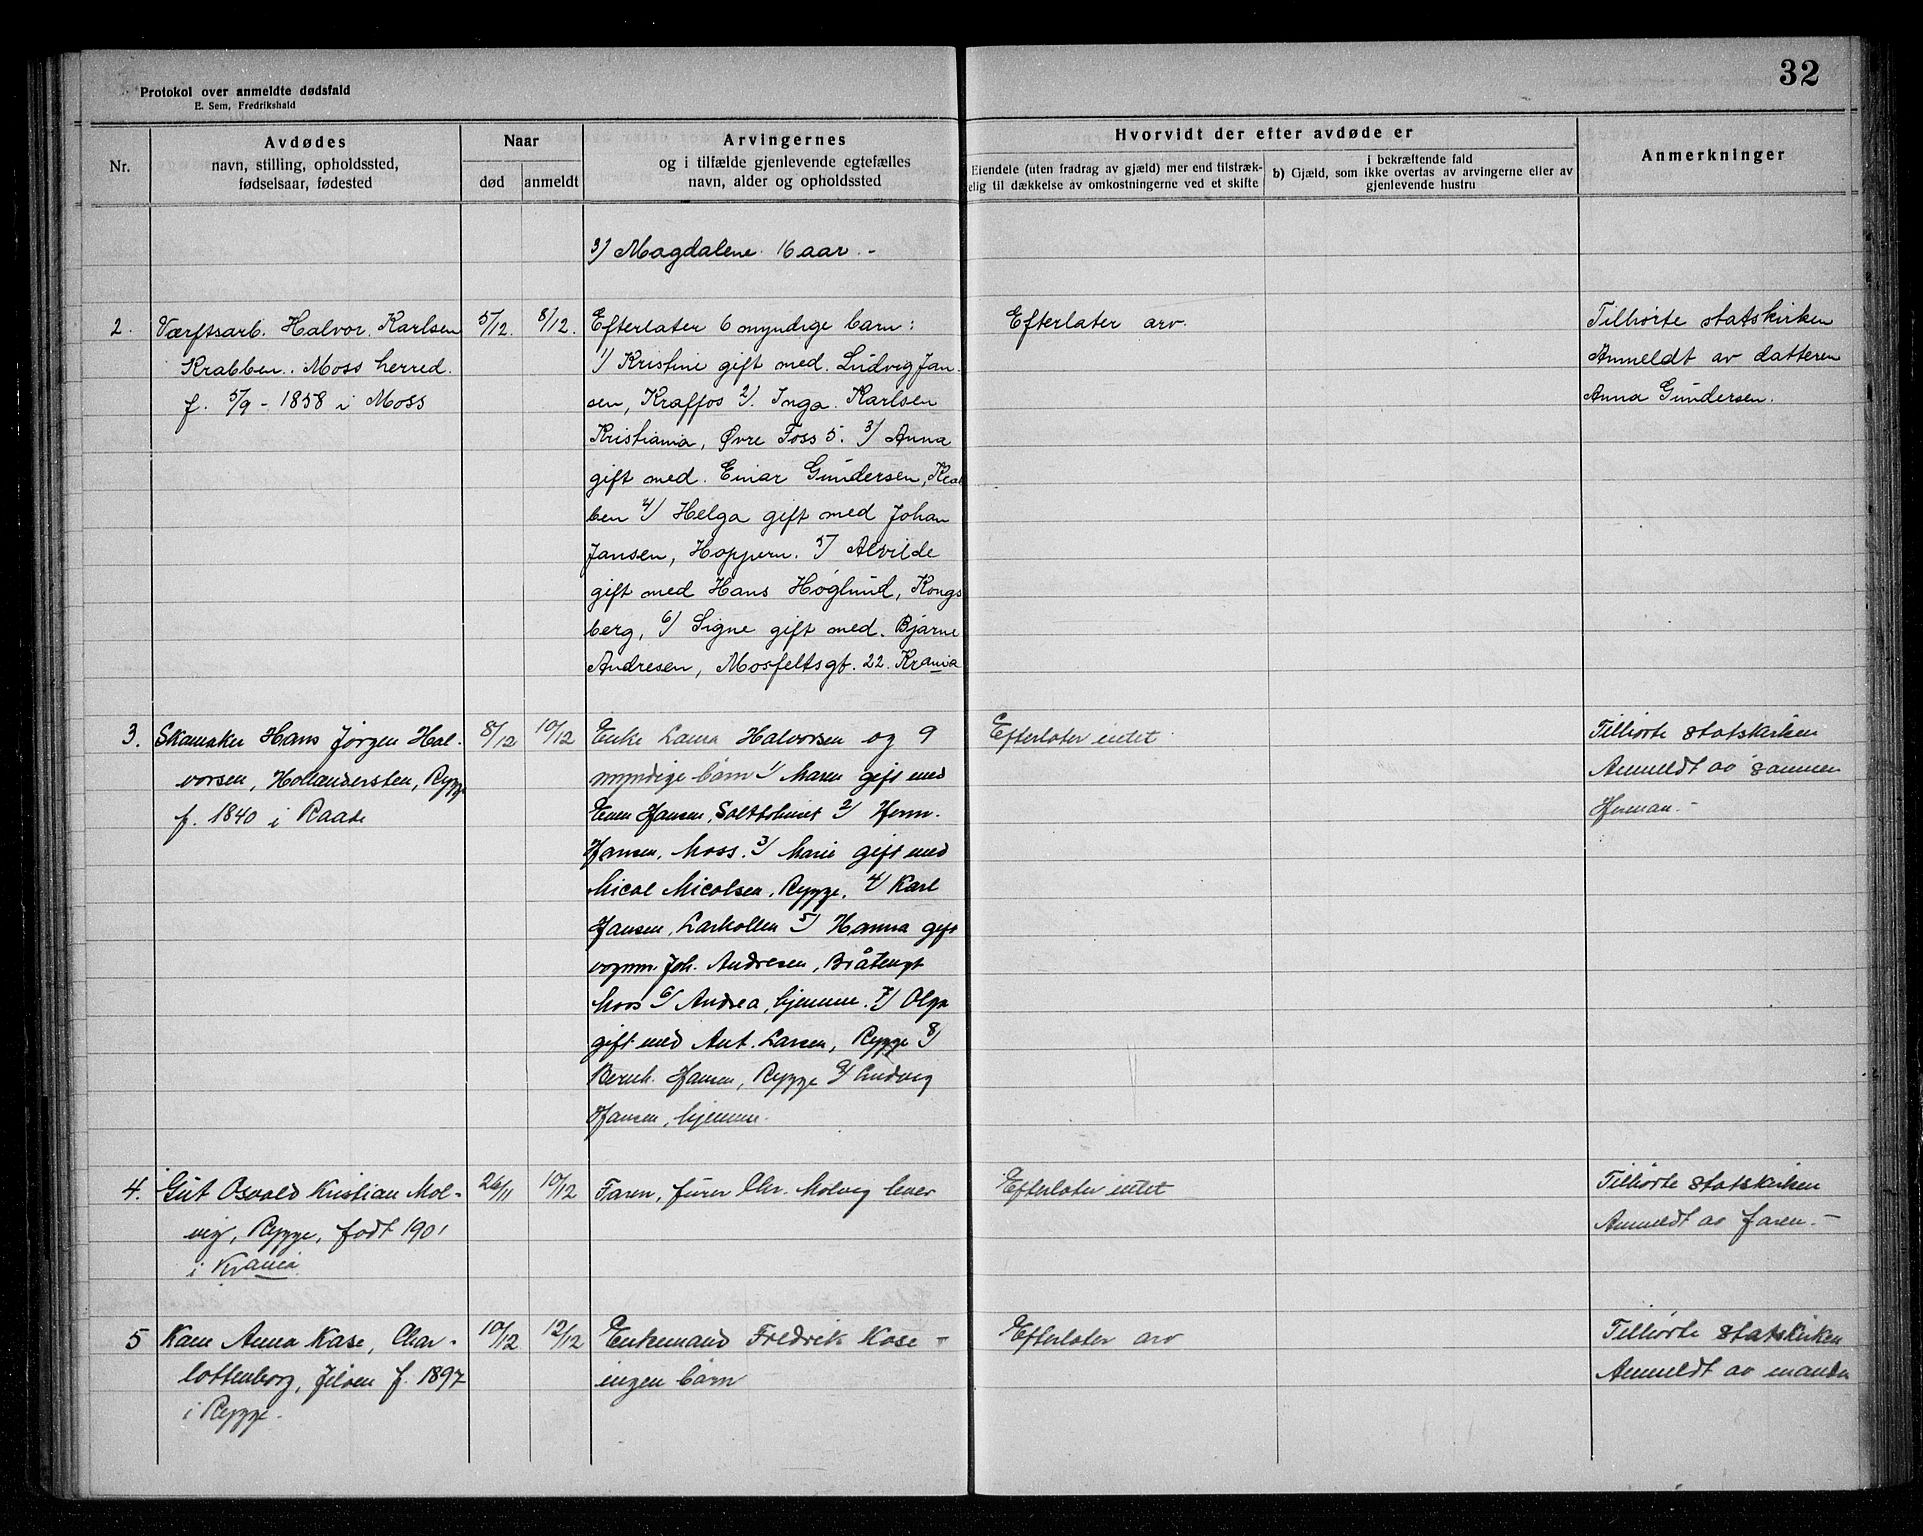 32
Protokol over anmeldte dødsfald
E. Sem, Fredrikshald
Nr.
Avdødes
navn, stilling, opholdssted,
fødselsaar, fødested
Naar
død
anmeldt
Arvingernes
og i tilfælde gjenlevende egtefælles
navn, alder og opholdssted
Hvorvidt der efter avdøde er
Eiendele (uten fradrag av gjæld) mer end tilstræk-
kelig til dækkelse av omkostningerne ved et skifte
i bekræftende fald
b) Gjæld, som ikke overtas av arvingerne eller av
gjenlevende hustru
Anmerkninger
3) Magdalene 16 aar. -
2.
Værftsarb. Halvor Karlsen
Krabben. Moss herred.
f. 5/9 - 1858 i Moss
5/12.
8/12.
Efterlater 6 myndige barn:
1) Kristine gift med. Ludvig Jan-
sen, Kraffos 2). Inga. Karlsen
Kristiania, Øvre Foss 5. 3) Anna
gift med. Einar Gundersen, Krab
ben 4) Helga gift med Johan
Jansen, Hoppern. 5) Alvilde
gift med Hans Høglund, Kongs
berg, 6) Signe gift med. Bjarne
Andresen, Mosfeltsgt. 22. Krania
Efterlater arv.
Tilhørte statskirken
Anmeldt av datteren
Anna Gundersen.
3.
Skomaker Hans Jørgen Hal-
vorsen, Hollendersten, Rygge
f. 1840 i Raade
8/12
10/12
Enke Laura Halvorsen og 9
myndige børn 1) Maren gift med
Even Hansen, 2) Herm.
Hansen, Moss. 3) Marie gift med
Nicol Nicolsen, Rygge, 4) Karl
Hansen, Larkollen 5) Hanna gift
vognm. Joh. Andresen, Bråtengt
Moss 6) Andrea, hjemme. 7) Olga
gift med Ant. Larsen, Rygge 8)
Bernh. Hansen, Rygge 9) Ludvig
Hansen, hjemme.
Efterlater intet
Tilhørte statskirken
Anmeldt av sønnen
Herman. -
4.
Gut Osvald Kristian Mol-
vig, Rygge, født 1901
i Krania
26/11
10/12
Faren, Chr. Molvig lever
Efterlater intet
Tilhørte statskirken
Anmeldt av faren. -
5
Kone Anna Kase, Char-
lottenborg, Jeløen f. 1897
i Rygge.
10/12
12/12
Enkemand Fredrik Kase -
ingen børn
Efterlater arv
Tilhørte statskirken
Anmeldt av manden